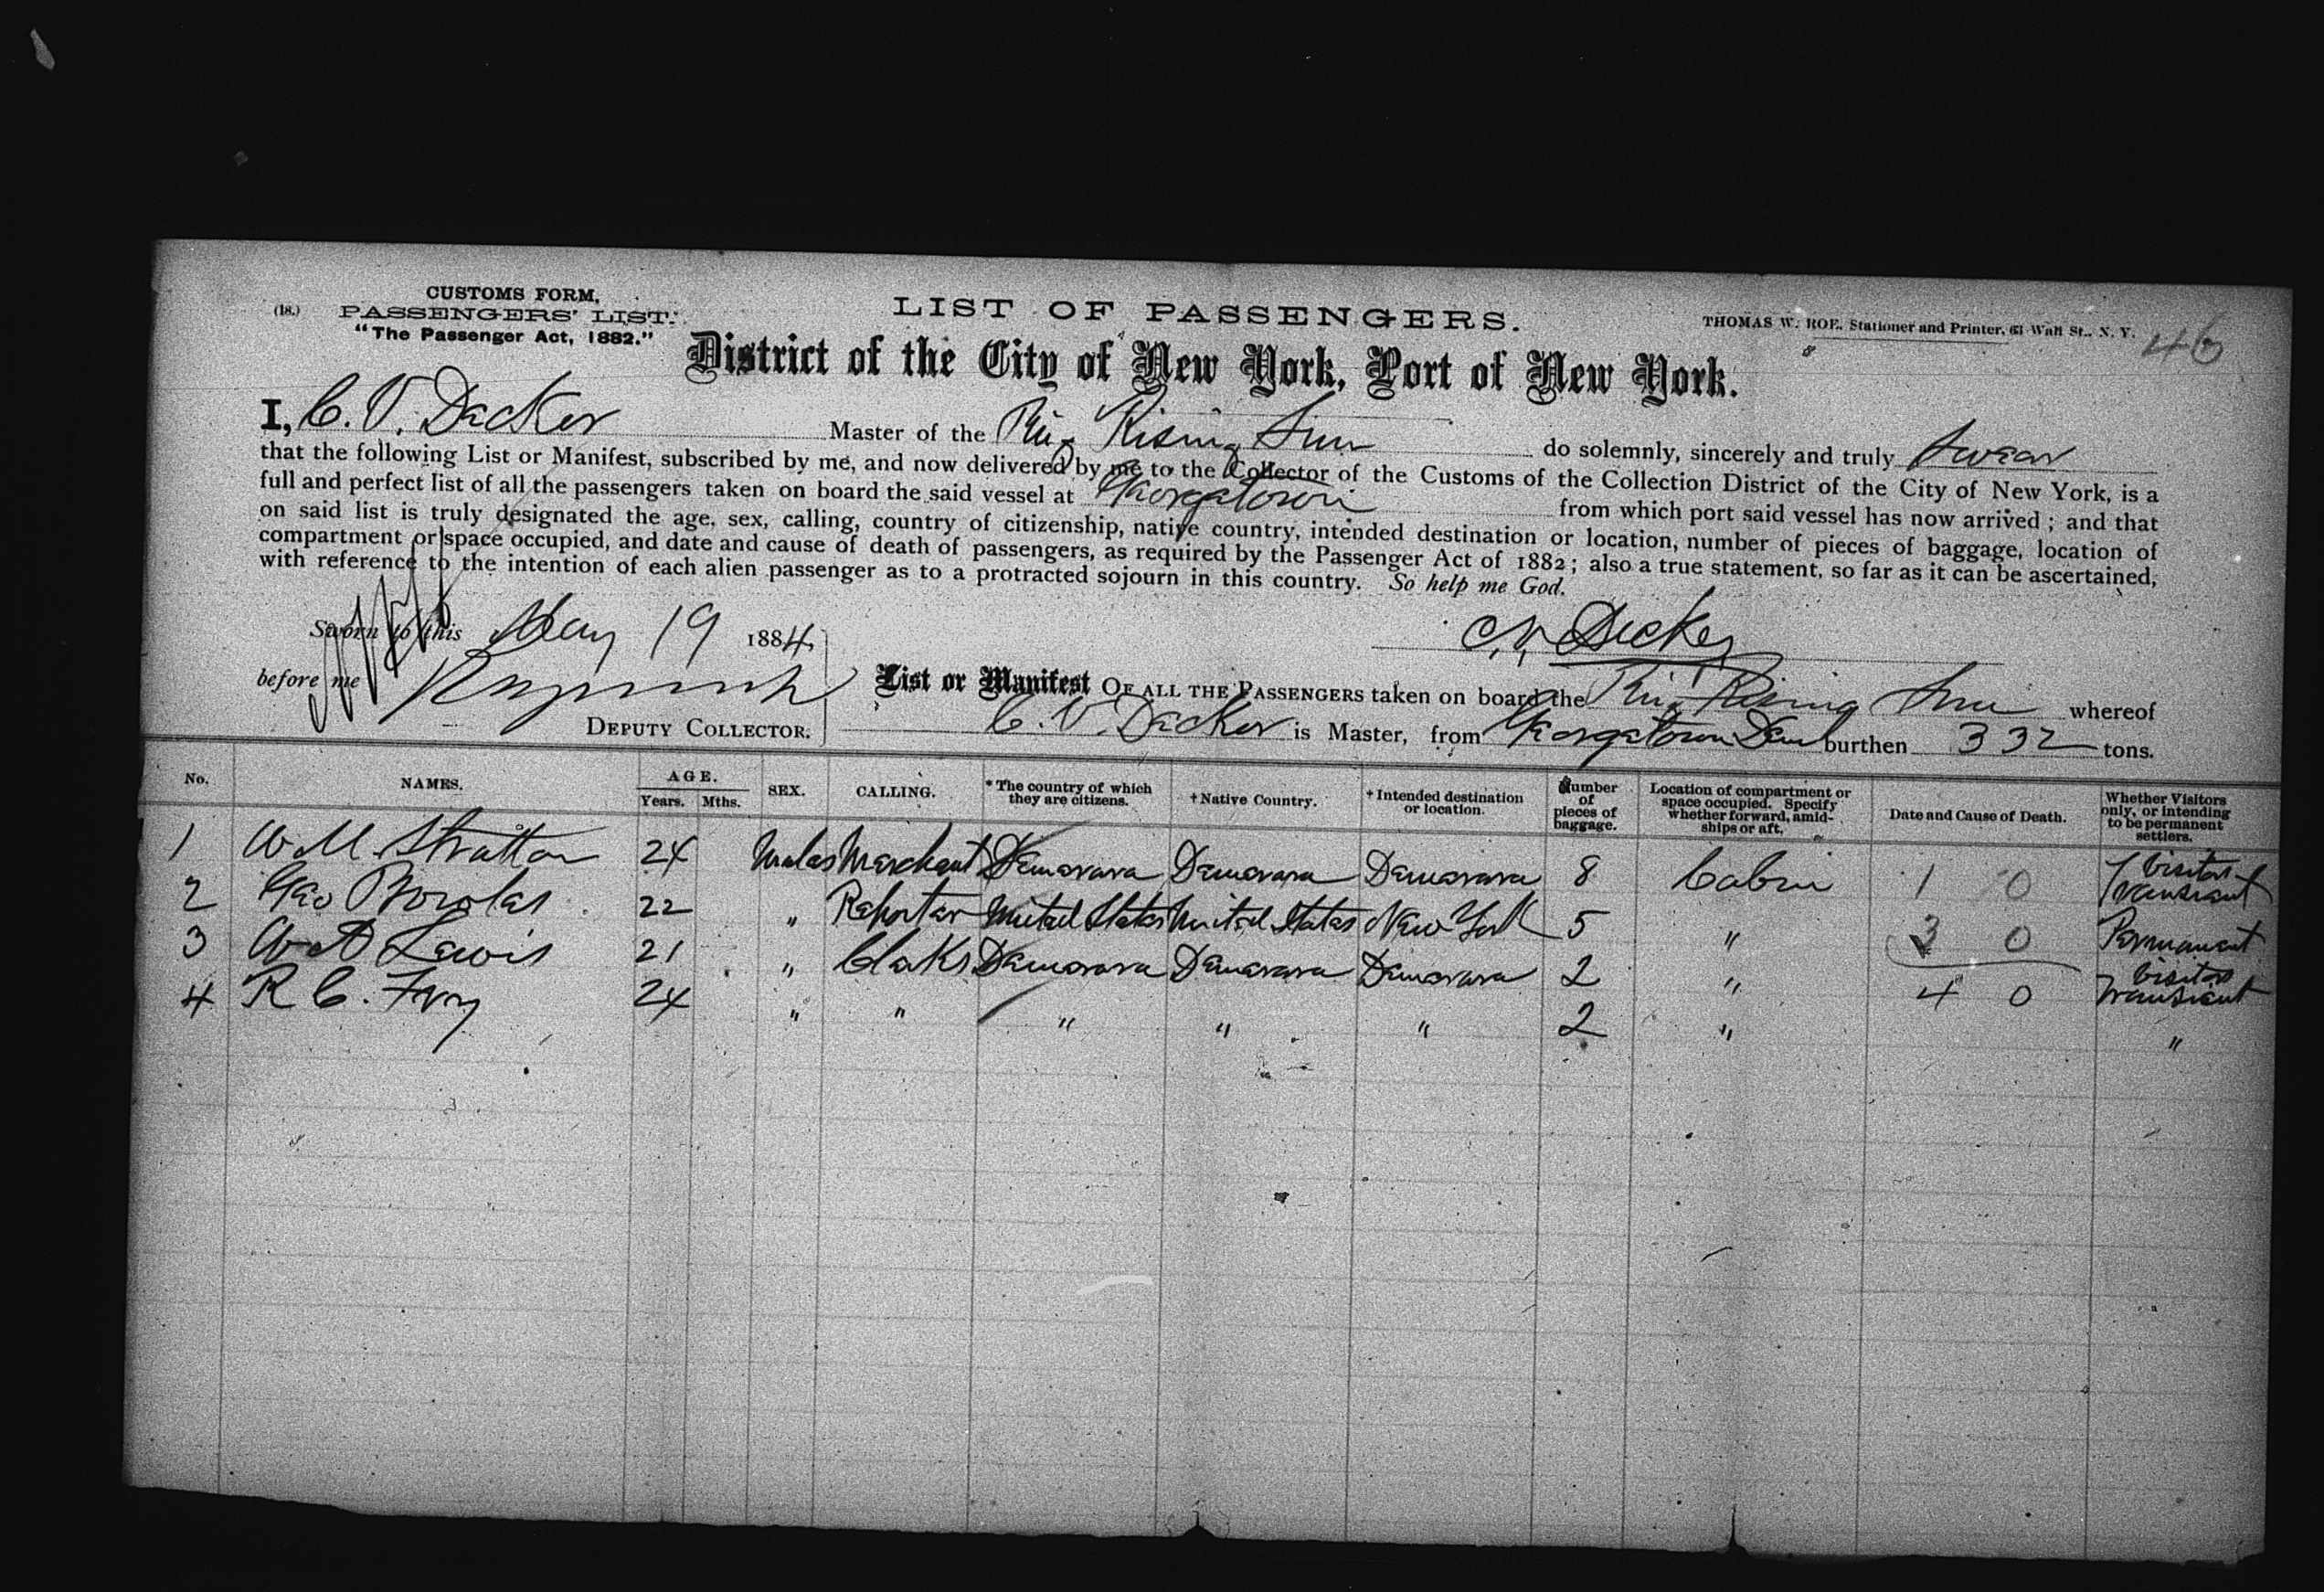 CUSTOMS FORM.
(18.) PASSENGERS' LIST.
"The Passenger Act, 1882."
LIST OF PASSENGERS.
THOMAS W. ROE, Stationer and Printer, 61 Wall St., N. Y. 46
District of the City of New York, Port of New York.
I, C. V. Decker Master of the Rising Sun do solemnly, sincerely and truly swear
that the following List or Manifest, subscribed by me, and now delivered by me to the Collector of the Customs of the Collection District of the City of New York, is a
full and perfect list of all the passengers taken on board the said vessel at Georgetown from which port said vessel has now arrived; and that
on said list is truly designated the age, sex, calling, country of citizenship, native country, intended destination or location, number of pieces of baggage, location of
compartment or space occupied, and date and cause of death of passengers, as required by the Passenger Act of 1882; also a true statement, so far as it can be ascertained,
with reference to the intention of each alien passenger as to a protracted sojourn in this country. So help me God.
Sworn to this May 19 1884.
C. V. Decker
before me
DEPUTY COLLECTOR.
List or Manifest OF ALL THE PASSENGERS taken on board the Rising Sun whereof
C. V. Decker is Master, from Georgetown Dem burthen 332 tons.
No. NAMES. AGE. Years. Mths. SEX. CALLING. * The country of which they are citizens. + Native Country. + Intended destination or location. Number of pieces of baggage. Location of compartment or space occupied. Specify whether forward, amidships or aft. Date and Cause of Death. Whether Visitors only, or intending to be permanent settlers.
1 W M Stratton 24 Males Merchant Demerara Demerara Demerara 8 Cabin 1 0 Visitor Transient
2 Geo 22 " Reporter United States United States New York 5 " 3 0 Permanent
3 W A Lewis 21 " Clerks Demerara Demerara Demerara 2 " 4 0 Visitor Transient
4 R C. Fry 24 " " " " " 2 " "